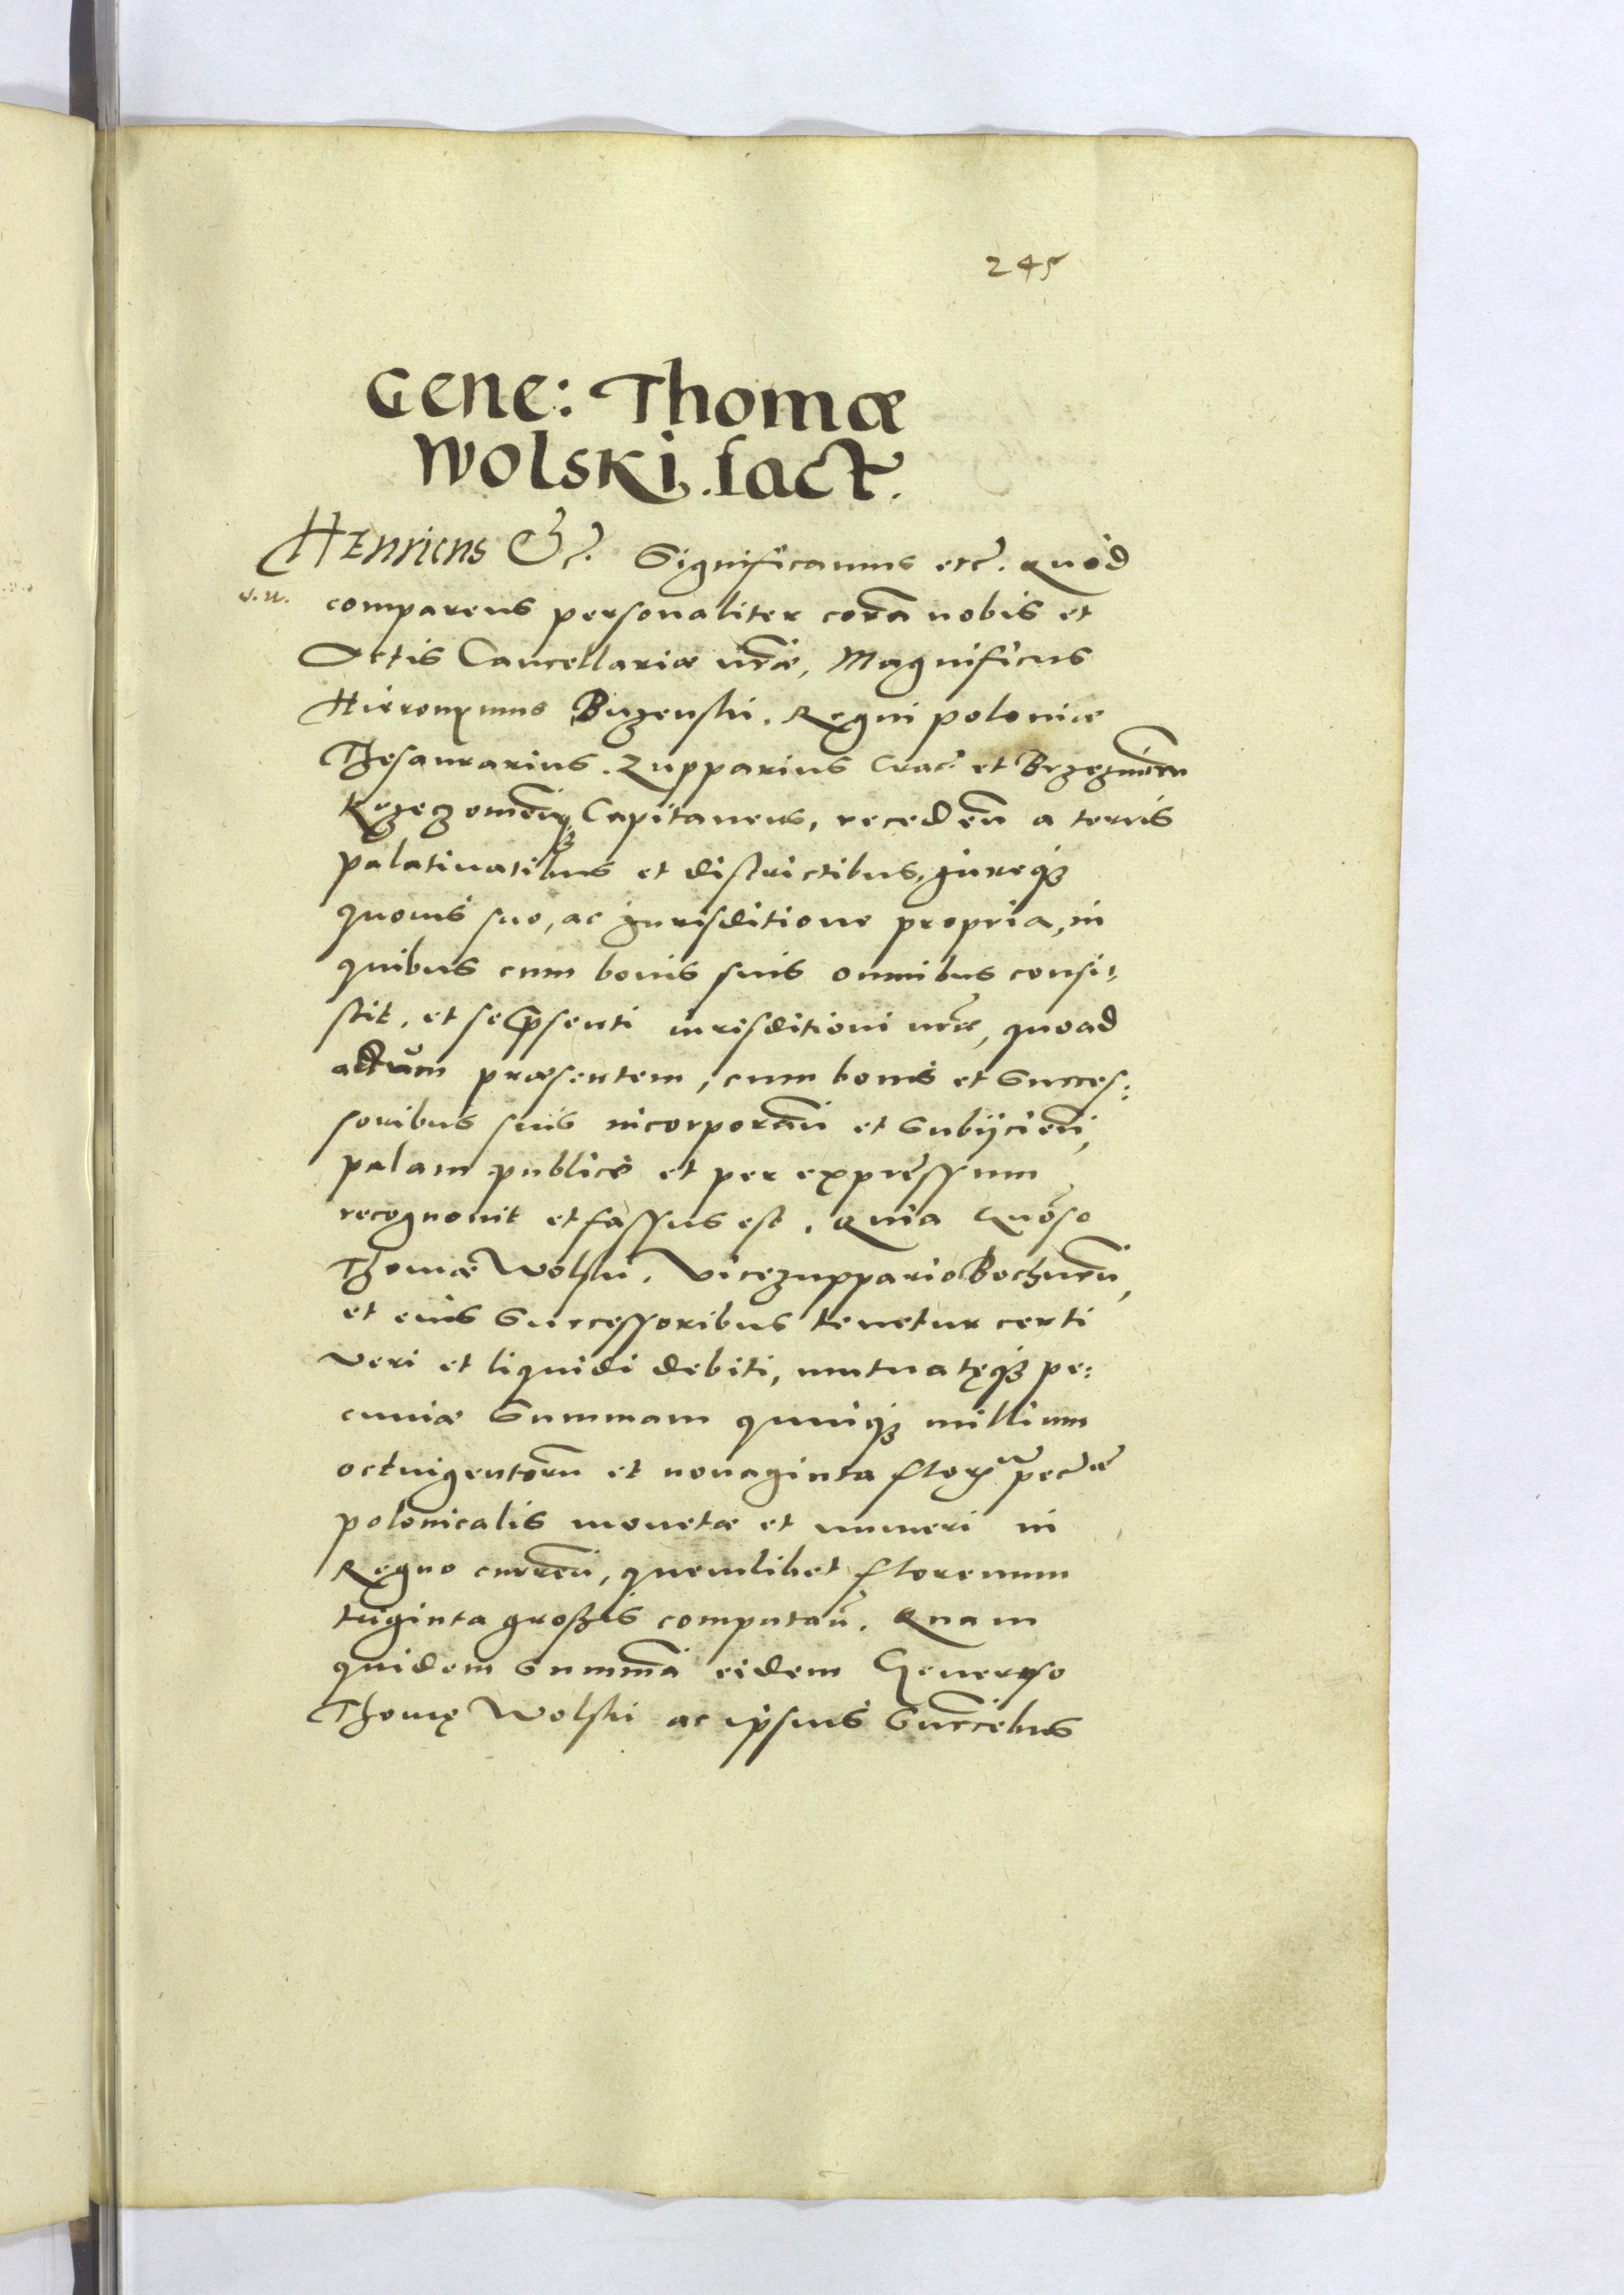 245
Gene: Thomæ
Wolski fact.
Henricus &c. Significamus etc. Quod
v. u.
comparens personaliter corā nobis et
Actis Cancellariæ nr̄æ, Magnificus
Hieronymus Buzenski, Regni poloniæ
Thesaurarius. Zupparius Crac. et Brzeznicen̄
Krzeczowien̄q3 Capitaneus, receden̄ a terris
palatinatibus et districtibus, jureq3
quovis suo, ac jurisditione propria, in
quibus cum bonis suis omnibus consi,
stit, et se p̄senti iurisditioni nr̄æ, quoad
actum præsentem, cum bonis et succes:
soribus suis incorporan̄ et subijcien̄,
palam publicè et per expressum
recognovit et fassus est. Quia Gnōso
Thomæ Wolski, Vicezuppario Bochnen̄,
et eius Successoribus tenetur certi
veri et liquidi debiti, mutuatęq3 pe:
cuniæ Summam quinq3 millium
octuigentorū et nonaginta flor. pecūæ
polonicalis monetæ et numeri in
Regno curren̄, quemlibet florenum
triginta großis computan̄. Quam
quidem Summā eidem Generoso
Thomę Wolski ac ipsius Succēbus